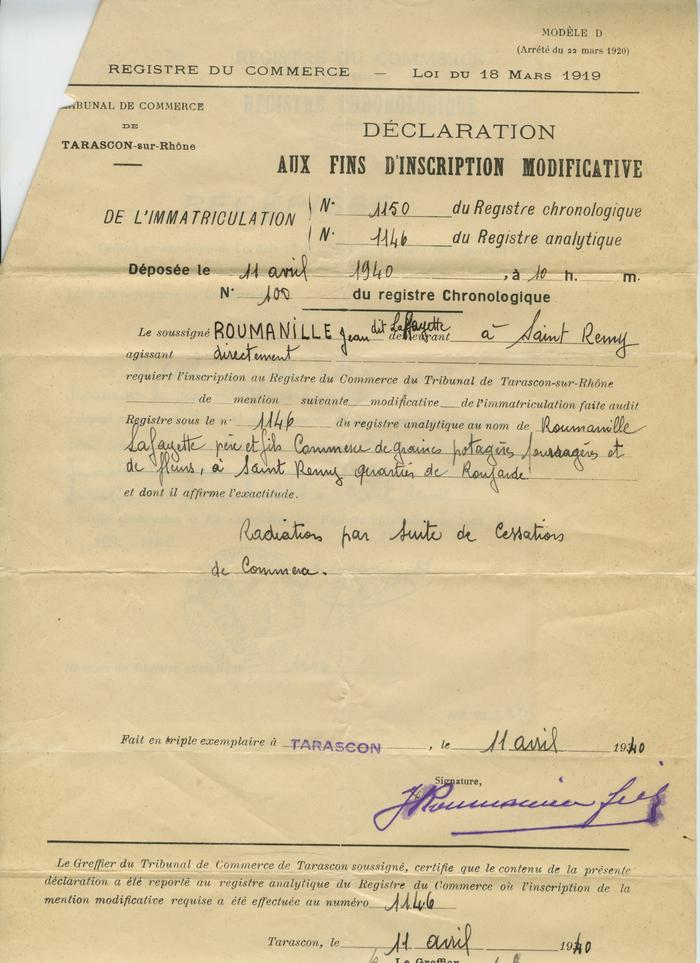 MODÈLE D
(Arrêté du 22 mars 1920)
REGISTRE DU COMMERCE — LOI DU 18 MARS 1919
TRIBUNAL DE COMMERCE
DE
TARASCON-sur-Rhône
DÉCLARATION
AUX FINS D'INSCRIPTION MODIFICATIVE
DE L'IMMATRICULATION
N° 1150 du Registre chronologique
N° 1146 du Registre analytique
Déposée le 11 avril 1940, à 10 h. m.
N° 100 du registre Chronologique
Le soussigné ROUMANILLE Jean dit Lafayette demeurant à Saint Remy
agissant directement
requiert l'inscription au Registre du Commerce du Tribunal de Tarascon-sur-Rhône
de mention suivante modificative de l'immatriculation faite audit
Registre sous le n° 1146 du registre analytique au nom de Roumanille
Lafayette père et fils Commerce de graines potagères fourragères et
de fleurs, à Saint Remy quartier de
et dont il affirme l'exactitude.
Radiation par suite de Cessation
de Commerce.
Fait en triple exemplaire à TARASCON, le 11 avril 1940
Signature,
JRoumanille fils
Le Greffier du Tribunal de Commerce de Tarascon soussigné, certifie que le contenu de la présente
déclaration a été reporté au registre analytique du Registre du Commerce où l'inscription de la
mention modificative requise a été effectuée au numéro 1146
Tarascon, le 11 avril 1940
Le Greffier